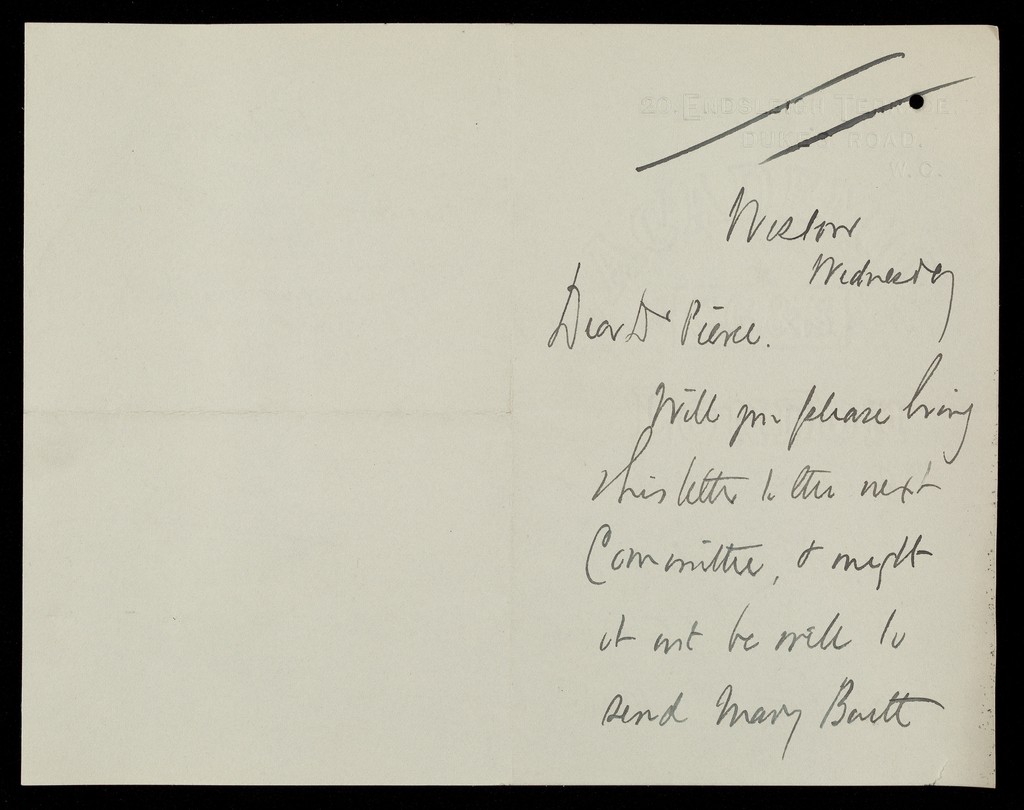 20. ENDSLEIGH TERRACE
DUKE'S ROAD.
W.C.
Wednesday
Dear Dr Pierce.
Will you please bring
this letter to the next
Committee, & might
it not be well to
send Mary